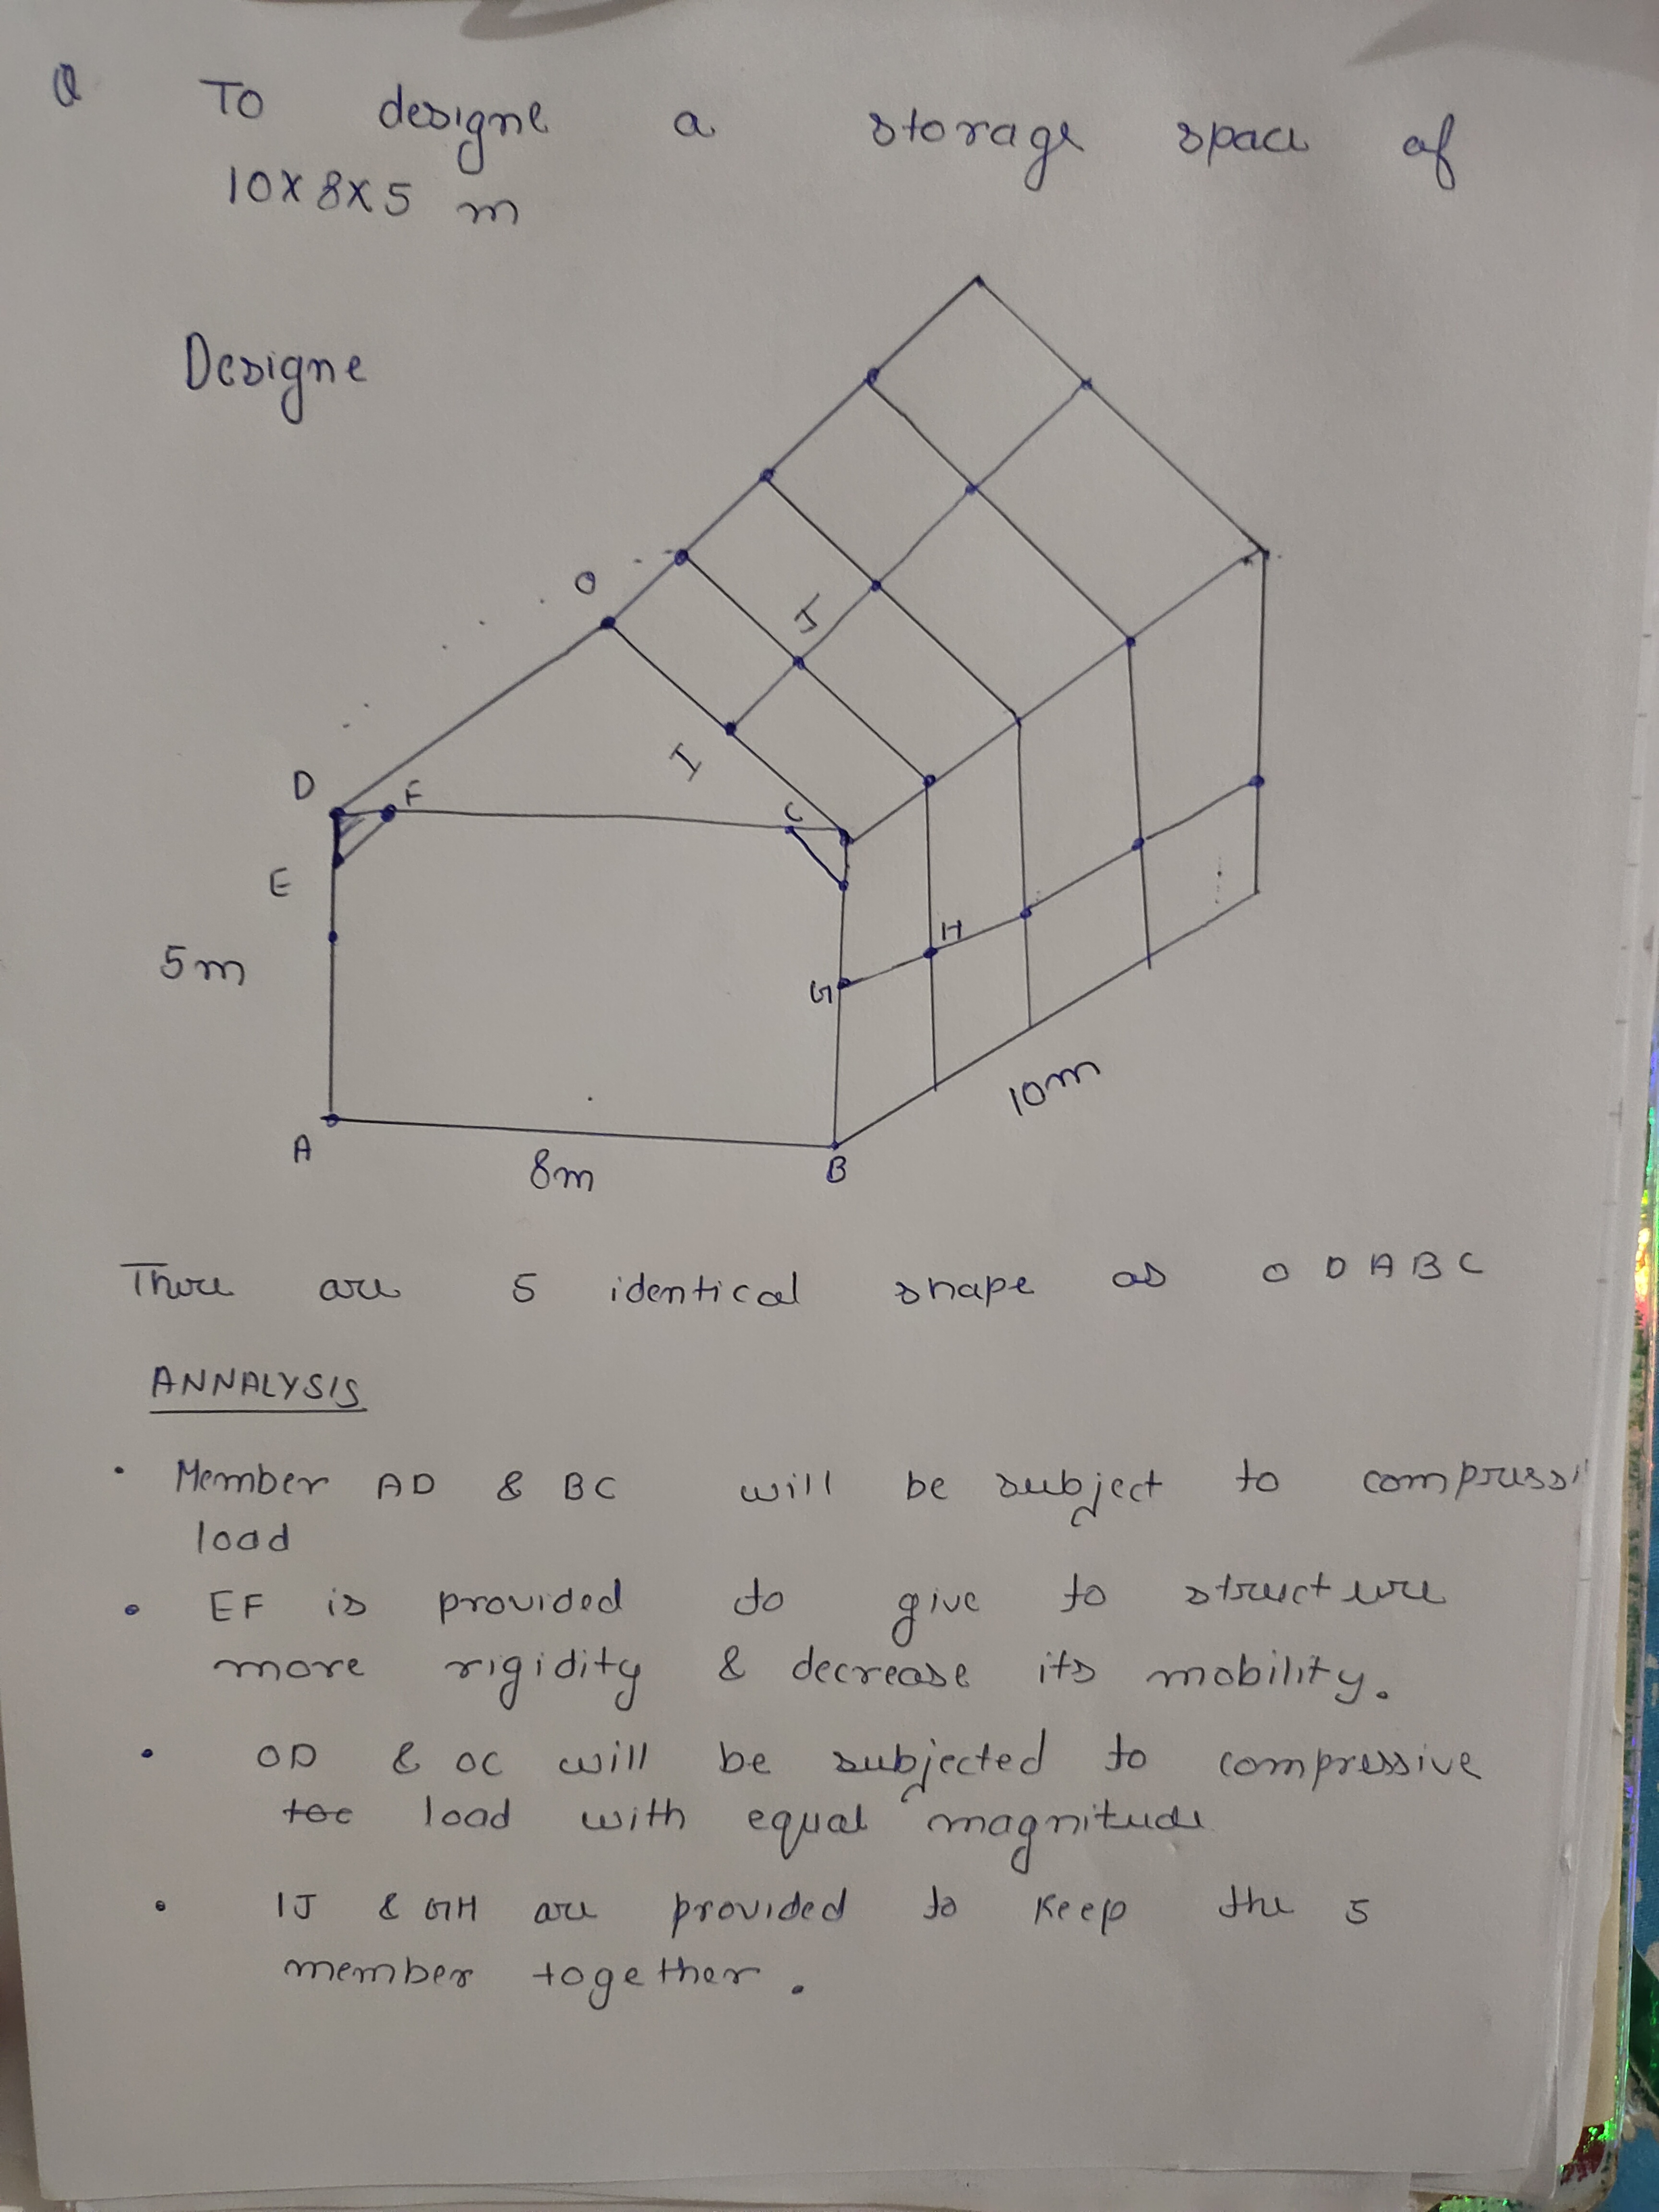 Q To designe a storage space of
10X8X5 m
Designe
O
J
I
D F
C
E
H
5m
G
10m
A
8m
B
There are 5 identical shape as O D A B C
ANNALYSIS
• Member AD & BC will be subject to compressi
load
• EF is provided to give to structure
more rigidity & decrease its mobility.
• OD & OC will be subjected to compressive
toc load with equal magnitude
• IJ & GH are provided to keep the 5
member together.